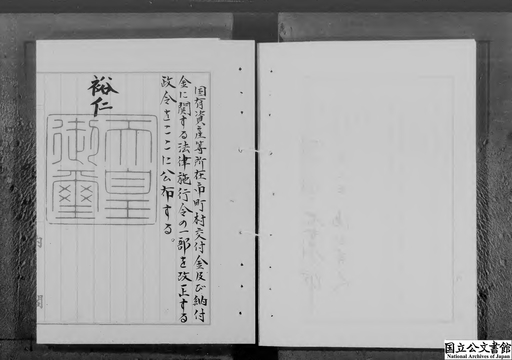 国有資産等所在市町村交付金及び納付
金に関する法律施行令の一部を改正する
政令をここに公布する。
裕仁
天皇
御璽
国立公文書館
National Archives of Japan